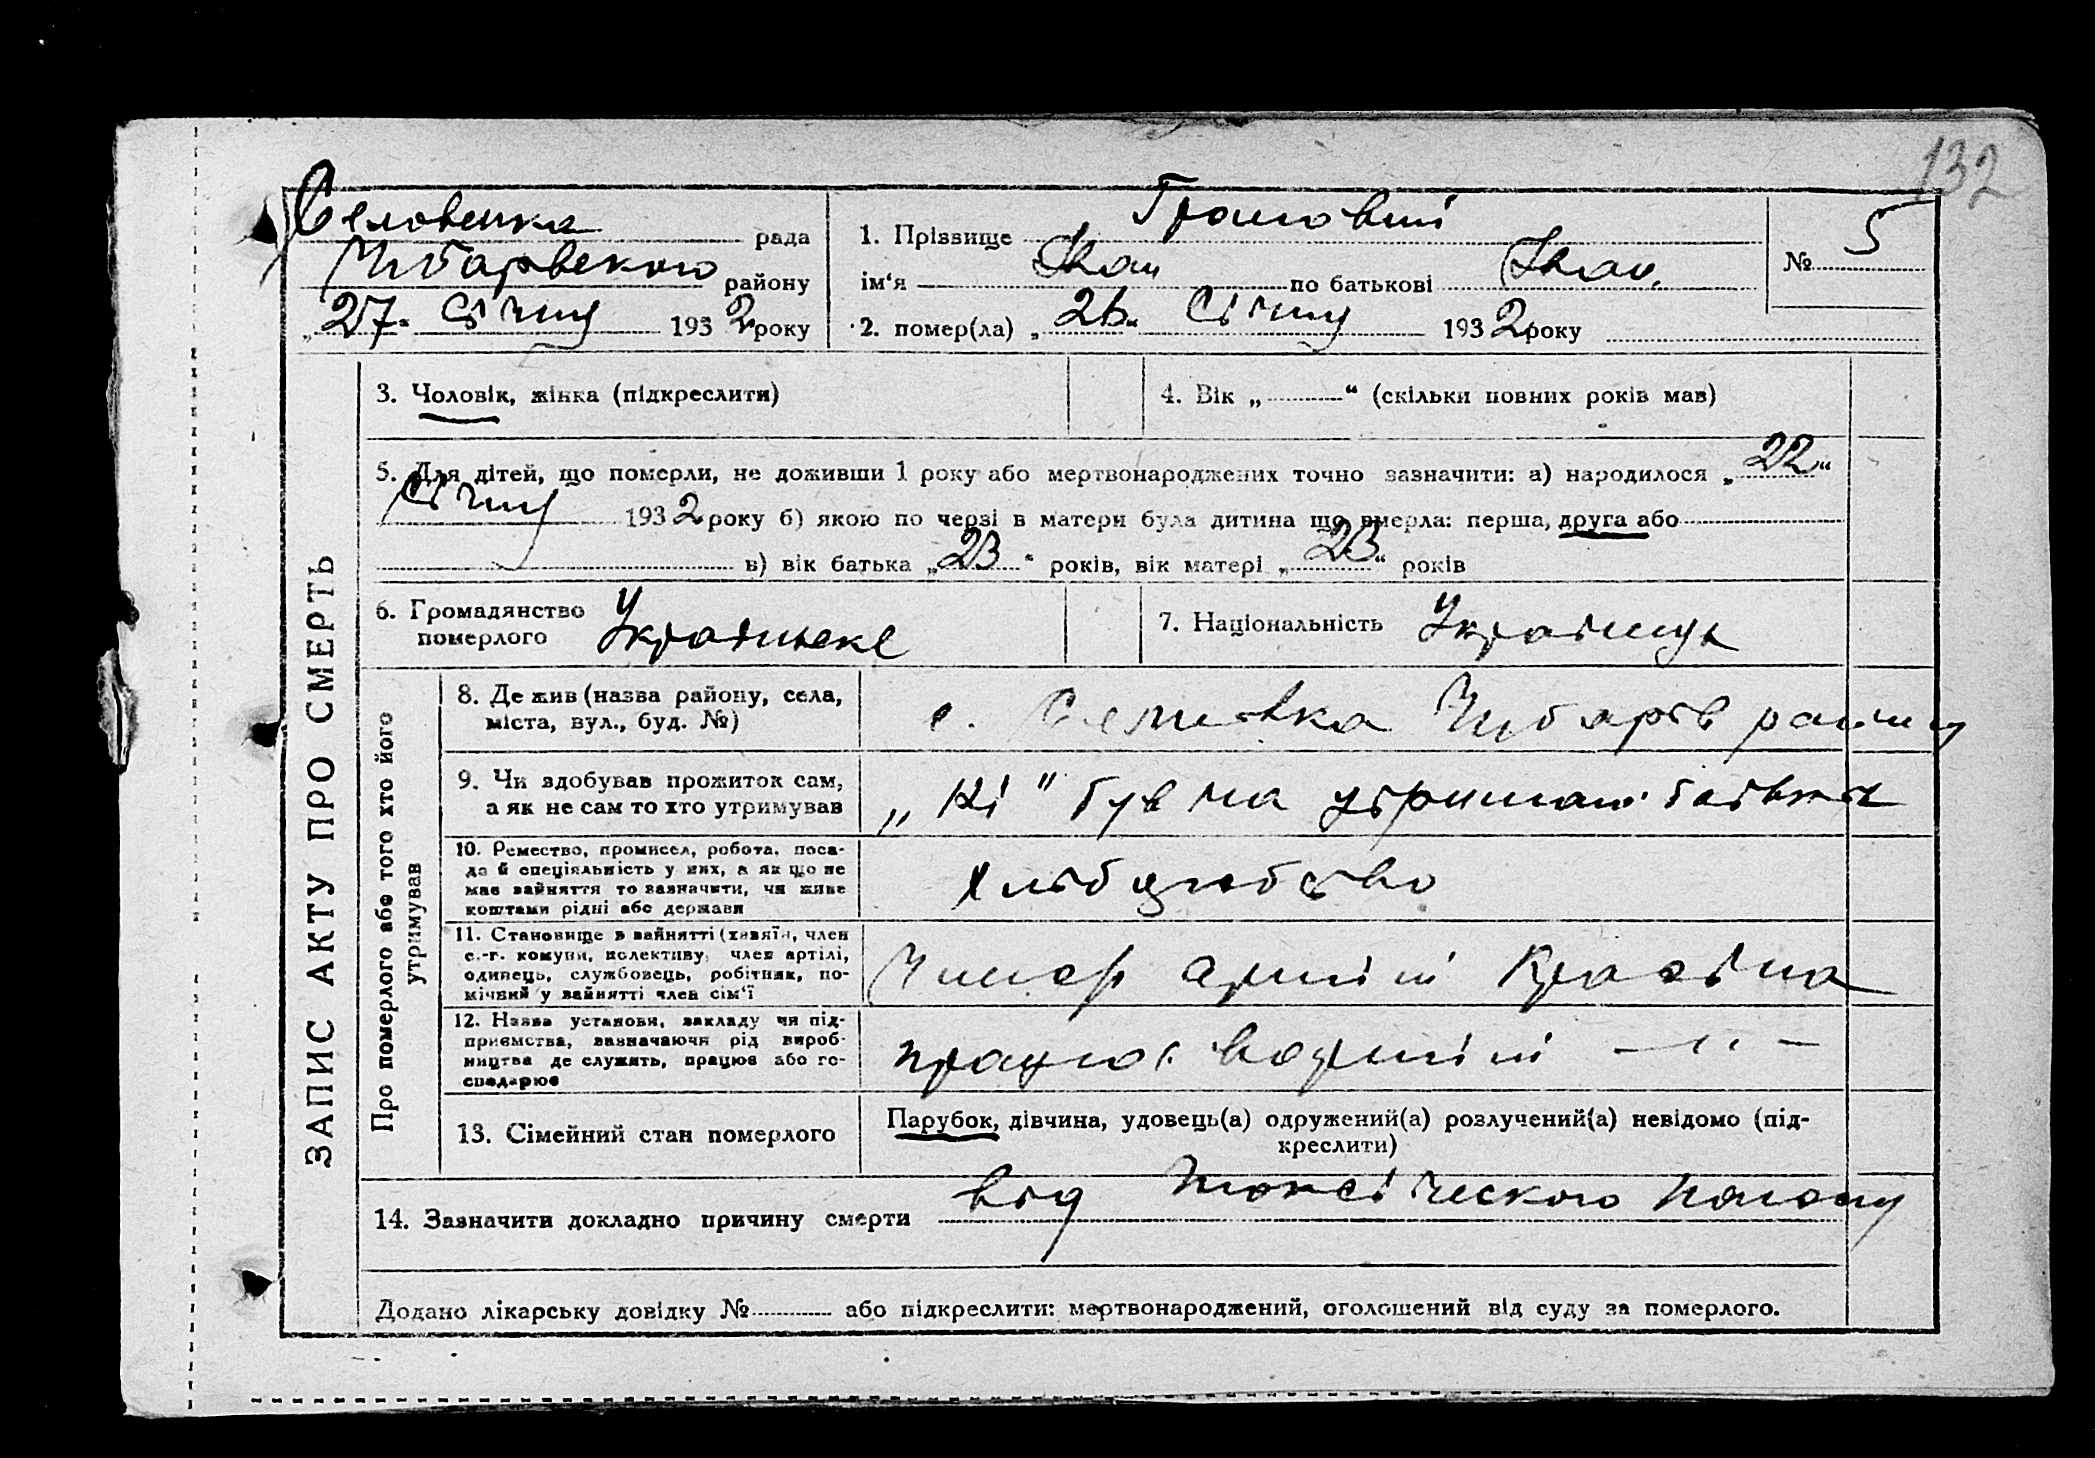 132
рада
Чубарвского району
„27“ Січня 1932 року
1. Прізвище
№ 5
ім‘я Іван по батькові Іван.
2. помер(ла) „26“ Січня 1932 року
ЗАПИС АКТУ ПРО СМЕРТЬ
3. Чоловік, жінка (підкреслити)
4. Вік „ “ (скільки повних років мав)
5. Для дітей, що померли, не доживши 1 року або мертвонароджених точно зазначити: а) народилося „22“
Січня 1932 року б) якою по черзі в матери була дитина що вмерла: перша, друга або
в) вік батька „23“ років, вік матері „23“ років
6. Громадянство
померлого Українське
7. Національність Українць
Про померлого або того хто його
утримував
8. Де жив (назва району, села,
міста, вул., буд. №)
с. Чубарів району
9. Чи здобував прожиток сам,
а як не сам то хто утримував
„Ні“ був на утриман. батька
10. Ремество, промисел, робота, поса-
да й спеціяльність у них, а як що не
має зайняття то зазначити, чи живе
коштами рідні або держави
Хліборобство
11. Становище в зайнятті (хазяїн, член
с.-г. комуни, колективу, член артілі,
одинець, службовець, робітник, по-
мічний у зайнятті член сім‘ї
Член артілі
12. Назва установи, закладу чи під-
приємства, зазначаючи рід вироб-
ництва де служить, працює або го-
сподарює
працює в артілі — " —
13. Сімейний стан померлого
Парубок, дівчина, удовець(а) одружений(а) розлучений(а) невідомо (під-
креслити)
14. Зазначити докладно причину смерти від токсіческого поносу
Додано лікарську довідку № або підкреслити: мертвонароджений, оголошений від суду за померлого.